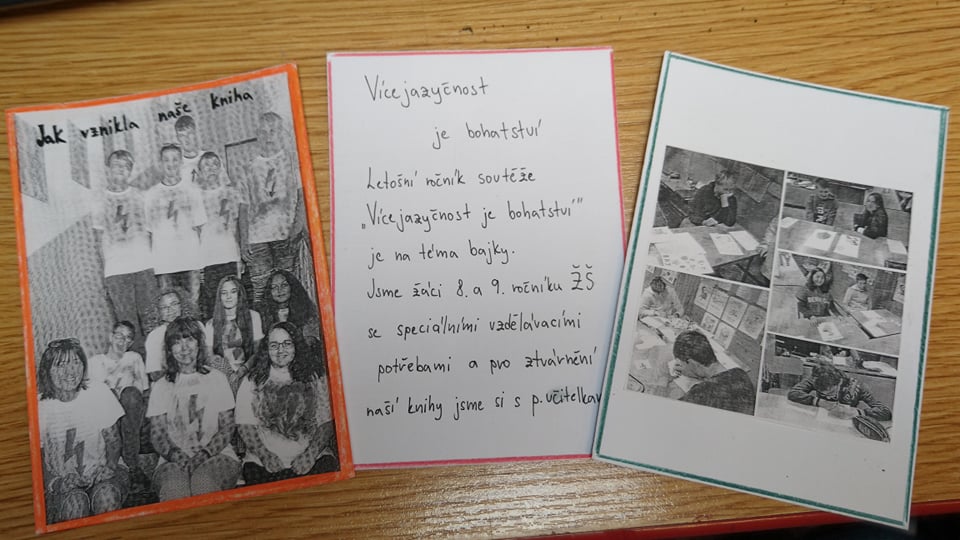 Jak vznikla naše kniha
Vícejazyčnost
je bohatství
Letošní ročník soutěže
„Vícejazyčnost je bohatství"
je na téma bajky.
Jsme žáci 8. a 9. ročníku ZŠ
se speciálními vzdělávacími
potřebami a pro ztvárnění
naší knihy jsme si s p. učitelkam